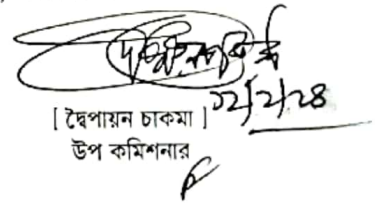 ১২/২/২৪
[ দ্বৈপায়ন চাকমা ]
উপ কমিশনার